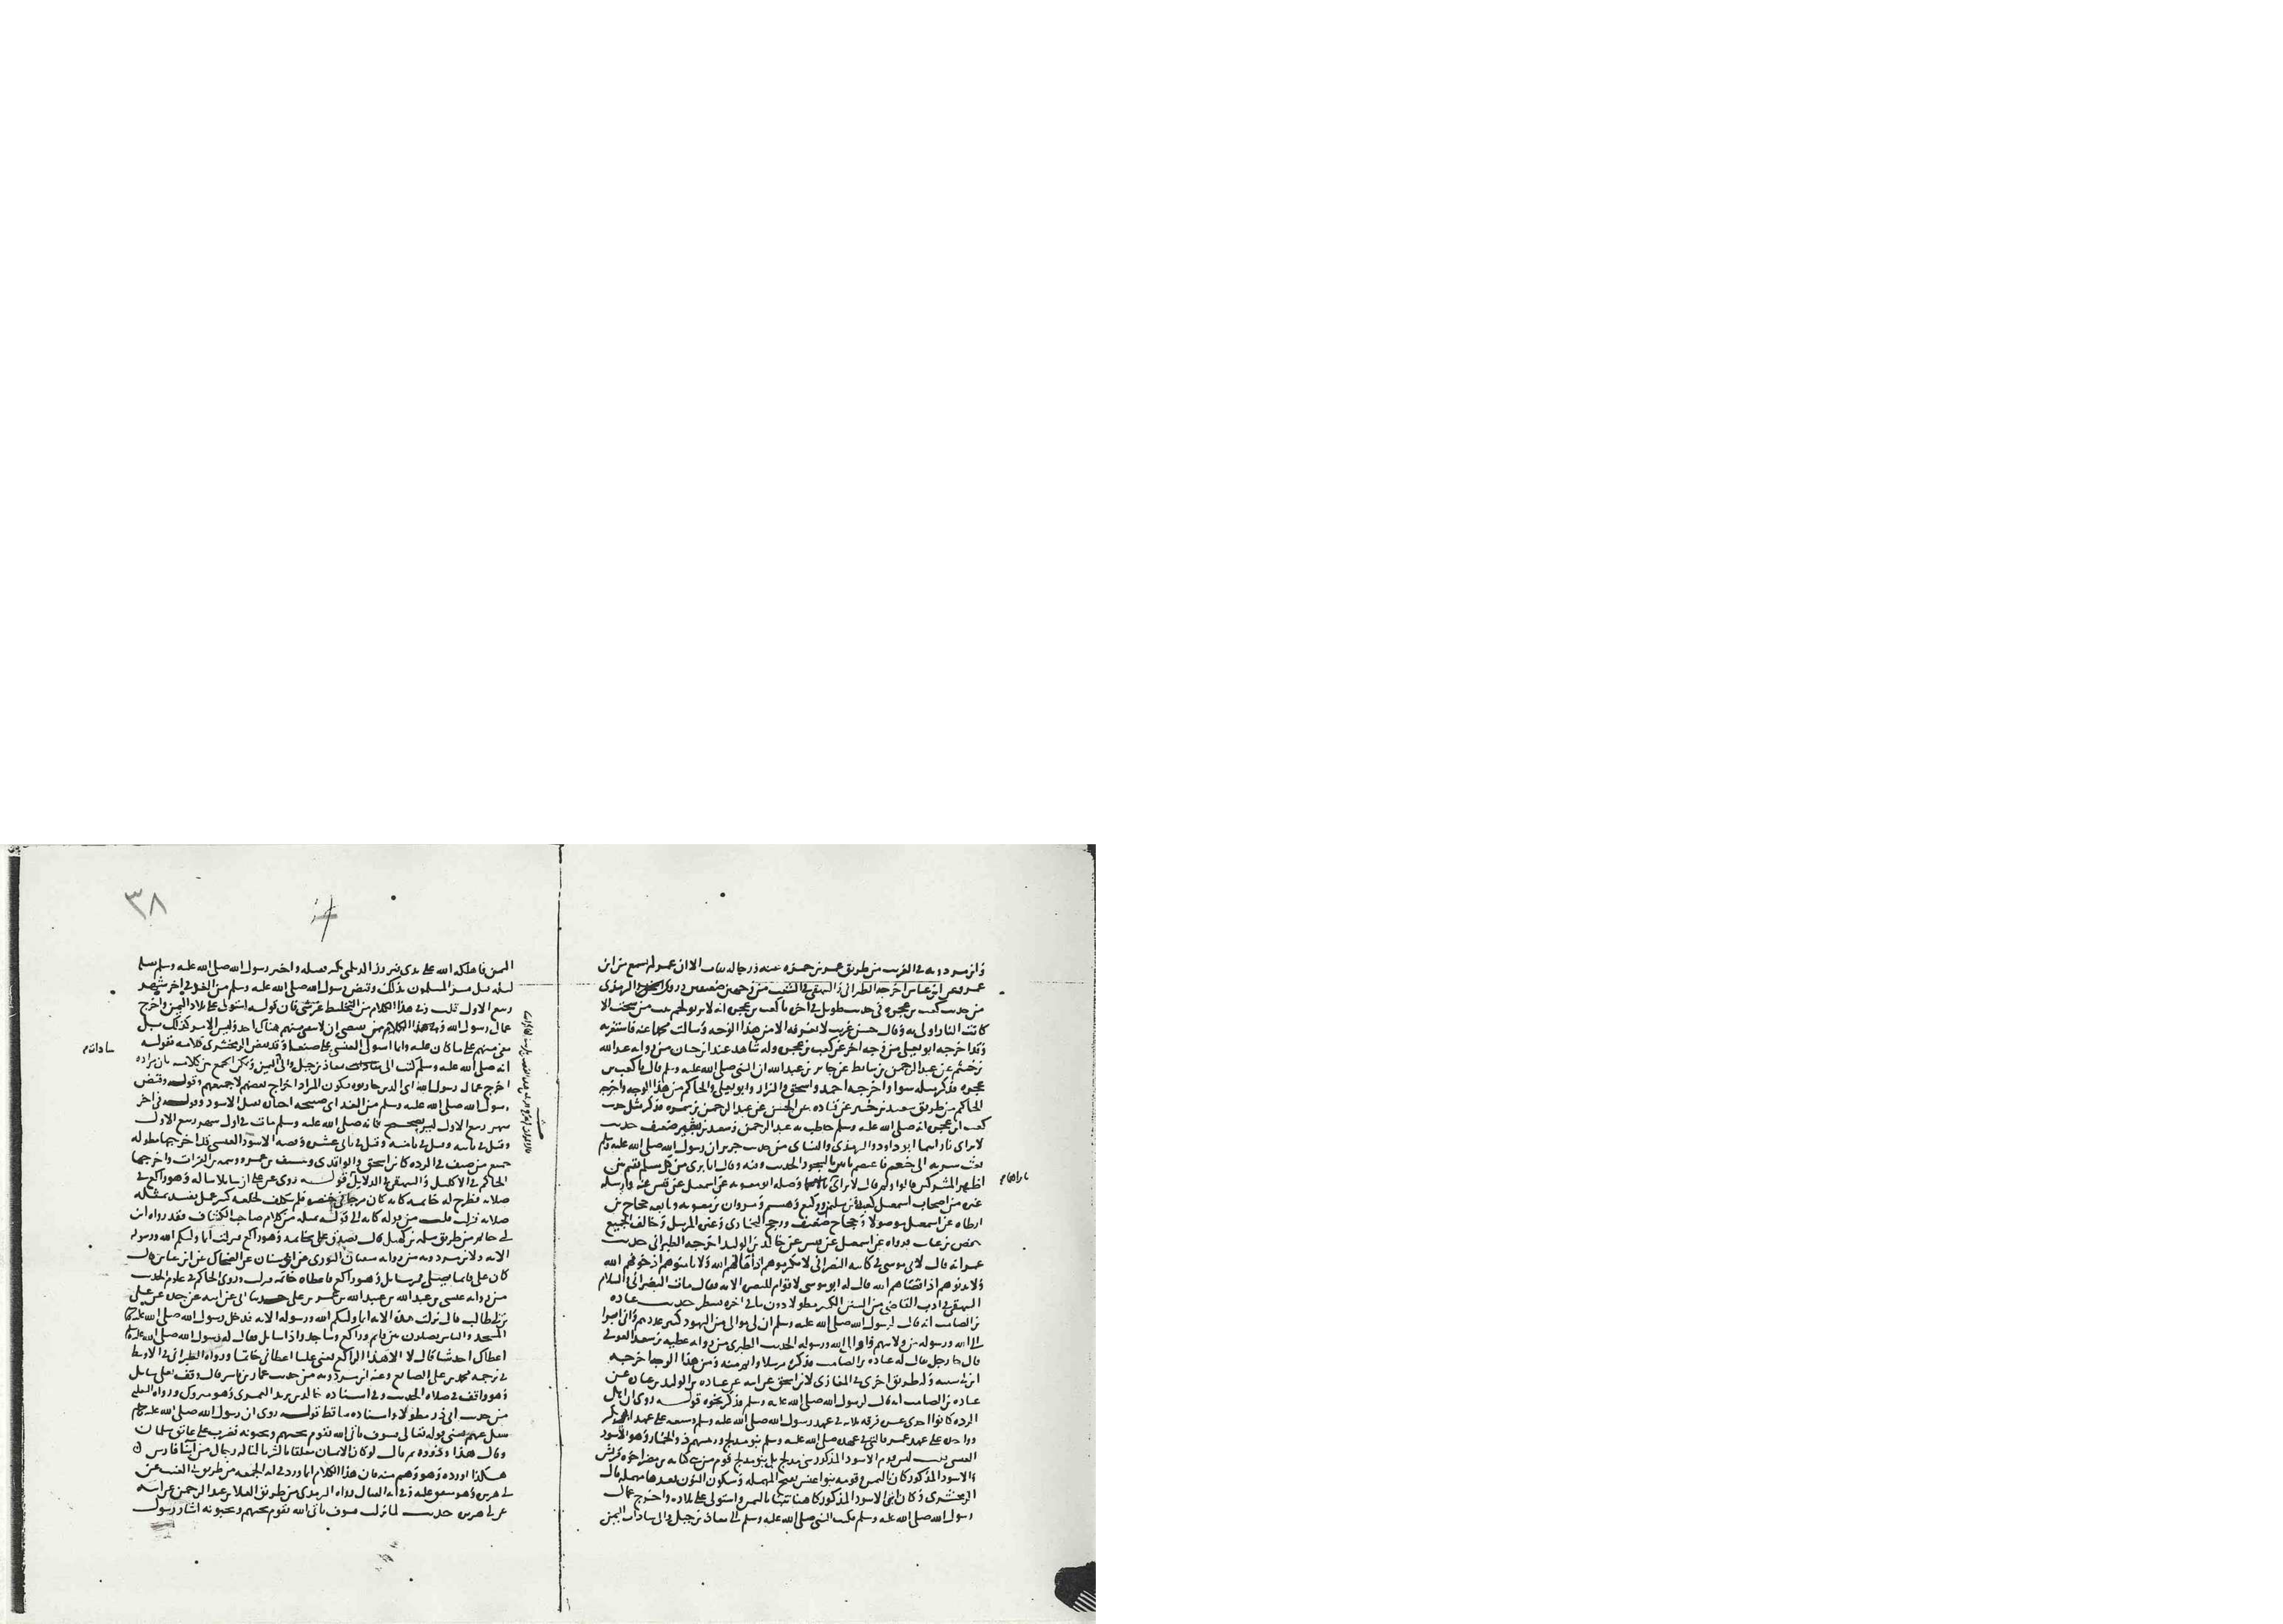 وابن مردويه في الغريب من طريق عمر بن حمزه عنه ورجاله ثقات الا ان عمر لم يسمع من ابن
عمر وعن ابن عباس اخرجه الطبراني والبيهقي في الشعب من وجهين ضعيفين وروى الترمذى
من حديث كعب بن عجره في حديث طويل في اخره يا كعب بن عجره انه لا يربو لحم نبت من سحت الا
كانت النار اولى به وقال حسن غريب لا نعرفه الا من هذا الوجه وسالت محمدا عنه فاستغربه
وقد اخرجه ابو يعلى من وجه اخر عن كعب بن عجره وله شاهد عند ابن حبان من روايه عبد الله
بن خثيم عن عبد الرحمن بن سابط عن جابر بن عبد الله ان النبي صلى الله عليه وسلم قال يا كعب بن
عجره فذكر مثله سوا واخرجه احمد واسحق والبزار وابو يعلى والحاكم من هذا الوجه واخرجه
الحاكم من طريق سعيد بن بشير عن قتاده عن الحسن عن عبد الرحمن بن سمره فذكر مثل حديث
كعب بن عجره انه صلى الله عليه وسلم خاطب به عبد الرحمن وسعيد بن بشير ضعيف حديث
لا تراى ناراهما ابو داود والترمذى والنساى من حديث جرير ان رسول الله صلى الله عليه وسلم
بعث سريه الى خثعم فاعتصم ناس بالسجود الحديث وفيه وقال انا برى من كل مسلم يقيم بين
اظهر المشركين قالوا ولم قال لا تراى وصله ابو معويه عن اسمعيل عن قيس عنه وارسله
غيره من اصحاب اسمعيل كعبده بن سليمن ووكيع وهشيم ومروان بن معويه وتابعه حجاج بن
ارطاه عن اسمعيل موصولا وحجاج ضعيف ورجح البخارى وغيره المرسل وخالف الجميع
حفص بن غياث فرواه عن اسمعيل عن قيس عن خالد بن الوليد اخرجه الطبراني حديث
عمر انه قال لابى موسى في كاتبه النصراني لا تكرموهم اذ اهانهم الله ولا تامنوهم اذ خونهم الله
ولا تدنوهم اذ اقصاهم الله قال له ابو موسى لا قوام للبصره الا به فقال مات النصراني والسلام
البيهقي في ادب القاضي من السنن الكبير مطولا دون ما في اخره ينظر حديث عباده
بن الصامت انه قال لرسول الله صلى الله عليه وسلم ان لى موالى من اليهود كثير عددهم وانى ابرا
الى الله ورسوله من ولايتهم واوالى الله ورسوله الحديث الطبرى من روايه عطيه بن سعد العوفي
قال جا رجل يقال له عباده بن الصامت فذكره مرسلا واتم منه ومن هذا الوجه اخرجه
ابن ابي شيبه وله طريق اخرى في المغازى لابن اسحق عن ابيه عن عباده بن الوليد بن عباده عن
عباده بن الصامت انه قال لرسول الله صلى الله عليه وسلم فذكر نحوه قوله روى ان اهل
الرده كانوا احدى عشره فرقه ثلاثه في عهد رسول الله صلى الله عليه وسلم وسبعه على عهد ابى بكر
وواحده على عهد عمر فالتى في عهده صلى الله عليه وسلم بنو مدلج ورئيسهم ذو الخمار وهو الاسود
العنسى قلت ليس قوم الاسود المذكور بنى مدلج بل بنو مدلج قوم من بنى كنانه بن مضر اخوه قريش
والاسود المذكور كان باليمن وقومه بنو عنس بفتح المهمله وسكون النون بعدها مهمله قال
الزمخشرى وكان اى الاسود المذكور كاهنا تنبا باليمن واستولى على بلاده واخرج عمال
رسول الله صلى الله عليه وسلم فكتب النبي صلى الله عليه وسلم الى معاذ بن جبل والى سادات اليمن
ناراهما م
٣٨
اليمن فاهلكه الله على يدى فيروز الديلمى بيته فقتله واخبر رسول الله صلى الله عليه وسلم بقتله
ليله قتل فسر المسلمون بذلك وقبض رسول الله صلى الله عليه وسلم من الغد في اخر شهر
ربيع الاول قلت وفي هذا الكلام من التخليط غير شى فان قوله استولى على بلاد اليمن واخرج
عمال رسول الله وفي هذا الكلام يقتضى ان لا يبقى منهم هناك احد وليس الامر كذلك بل
بقى منهم على ما كان عليه وانما استولى العنسى على صنعا وقد نقض الزمخشرى كلامه بقوله
انه صلى الله عليه وسلم كتب الى معاذ بن جبل والى اليمن ويمكن الجمع بين كلاميه بان مراده
اخرج عمال رسول الله اى الذين جاوروه فيكون المراد اخراج بعضهم لا جميعهم وقوله وقبض
رسول الله صلى الله عليه وسلم من الغد اى صبيحه احبار بقتل الاسود وقوله في اخر
شهر ربيع الاول ليس بصحيح فانه صلى الله عليه وسلم مات في اول شهر ربيع الاول
وقيل في ثانيه وقيل في ثامنه وقيل في ثانى عشره وقصه الاسود العنسى قد اخرجها مطوله
جميع من صنف في الرده كابن اسحق والواقدى وسيف بن عمر ووثيمه بن الفرات واخرجها
الحاكم في الاكليل والبيهقي في الدلايل قوله روى عن على ان سايلا ساله وهو راكع في
صلاته فطرح له خاتمه كانه كان مرجا في خنصره فلم يتكلف لخلعه كثير عمل يفسد بمثله
صلاته فنزلت قلت من قوله كانه الى قوله بمثله من كلام صاحب الكشاف فقد رواه ابن
ابي حاتم من طريق سلمه بن كهيل قال تصدق على بخاتمه وهو راكع فنزلت انما وليكم الله ورسوله
الايه ولابن مردويه من روايه سفيان الثورى عن ابى سنان عن الضحاك عن ابن عباس قال
كان على قايما يصلى فمر سايل وهو راكع فاعطاه خاتمه فنزلت وروى الحاكم في علوم الحديث
من روايه عيسى بن عبد الله بن عبيد الله بن عمر بن على حدثنا ابى عن ابيه عن جده عن على
بن ابي طالب قال نزلت هذه الايه انما وليكم الله ورسوله الايه فدخل رسول الله صلى الله عليه وسلم
المسجد والناس يصلون بين قايم وراكع وساجد واذا سايل فقال له رسول الله صلى الله عليه وسلم
اعطاك احد شيا قال لا الا هذا الراكع يعنى عليا اعطانى خاتما ورواه الطبراني في الاوسط
في ترجمه محمد بن على الصايغ وعند ابن مردويه من حديث عمار بن ياسر قال وقف بعلى سايل
وهو واقف في صلاه الحديث وفي اسناده خالد بن يزيد العمرى وهو متروك ورواه الثعلبى
من حديث ابى ذر مطولا واسناده ساقط قوله روى ان رسول الله صلى الله عليه وسلم
سئل عنهم يعنى قوله تعالى فسوف ياتى الله بقوم يحبهم ويحبونه فضرب على عاتق سلمان
وقال هذا وذووه ثم قال لو كان الايمان معلقا بالثريا لناله رجال من ابنا فارس
هكذا اورده وهو وهم منه فان هذا الكلام انما ورد في ايه الجمعه من طريق ابى الغيث عن
ابى هريره وهو متفق عليه وفي ايه القتال رواه الترمذى من طريق العلا بن عبد الرحمن عن ابيه
عن ابى هريره حديث لما نزلت فسوف ياتى الله بقوم يحبهم ويحبونه اشار رسول
سادات م